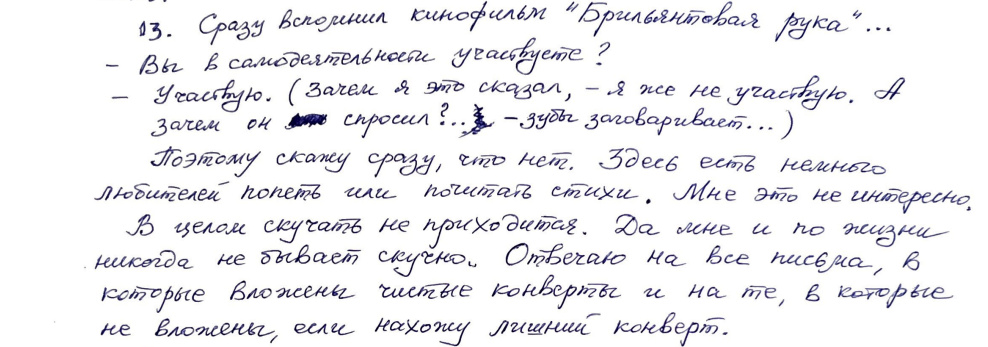 13. Сразу вспомнил кинофильм "Брильянтовая рука"...
– Вы в самодеятельности участвуете?
– Участвую. (Зачем я это сказал, – я же не участвую. А
зачем он спросил?.. – зубы заговаривает...)
Поэтому скажу сразу, что нет. Здесь есть немного
любителей попеть или почитать стихи. Мне это не интересно.
В целом скучать не приходится. Да мне и по жизни
никогда не бывает скучно. Отвечаю на все письма, в
которые вложены чистые конверты и на те, в которые
не вложены, если нахожу лишний конверт.